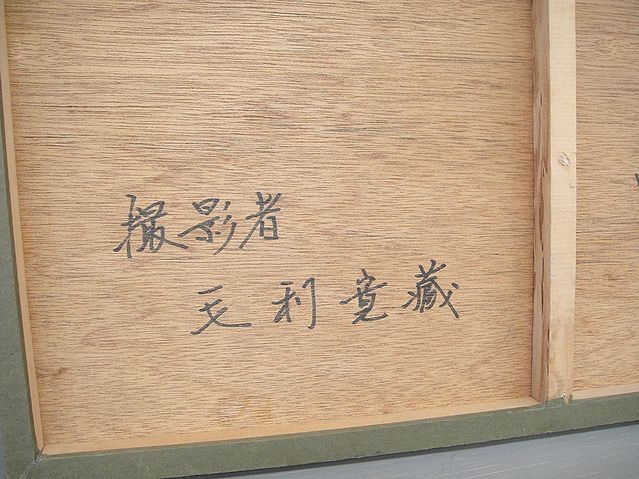 撮影者
毛利寛蔵